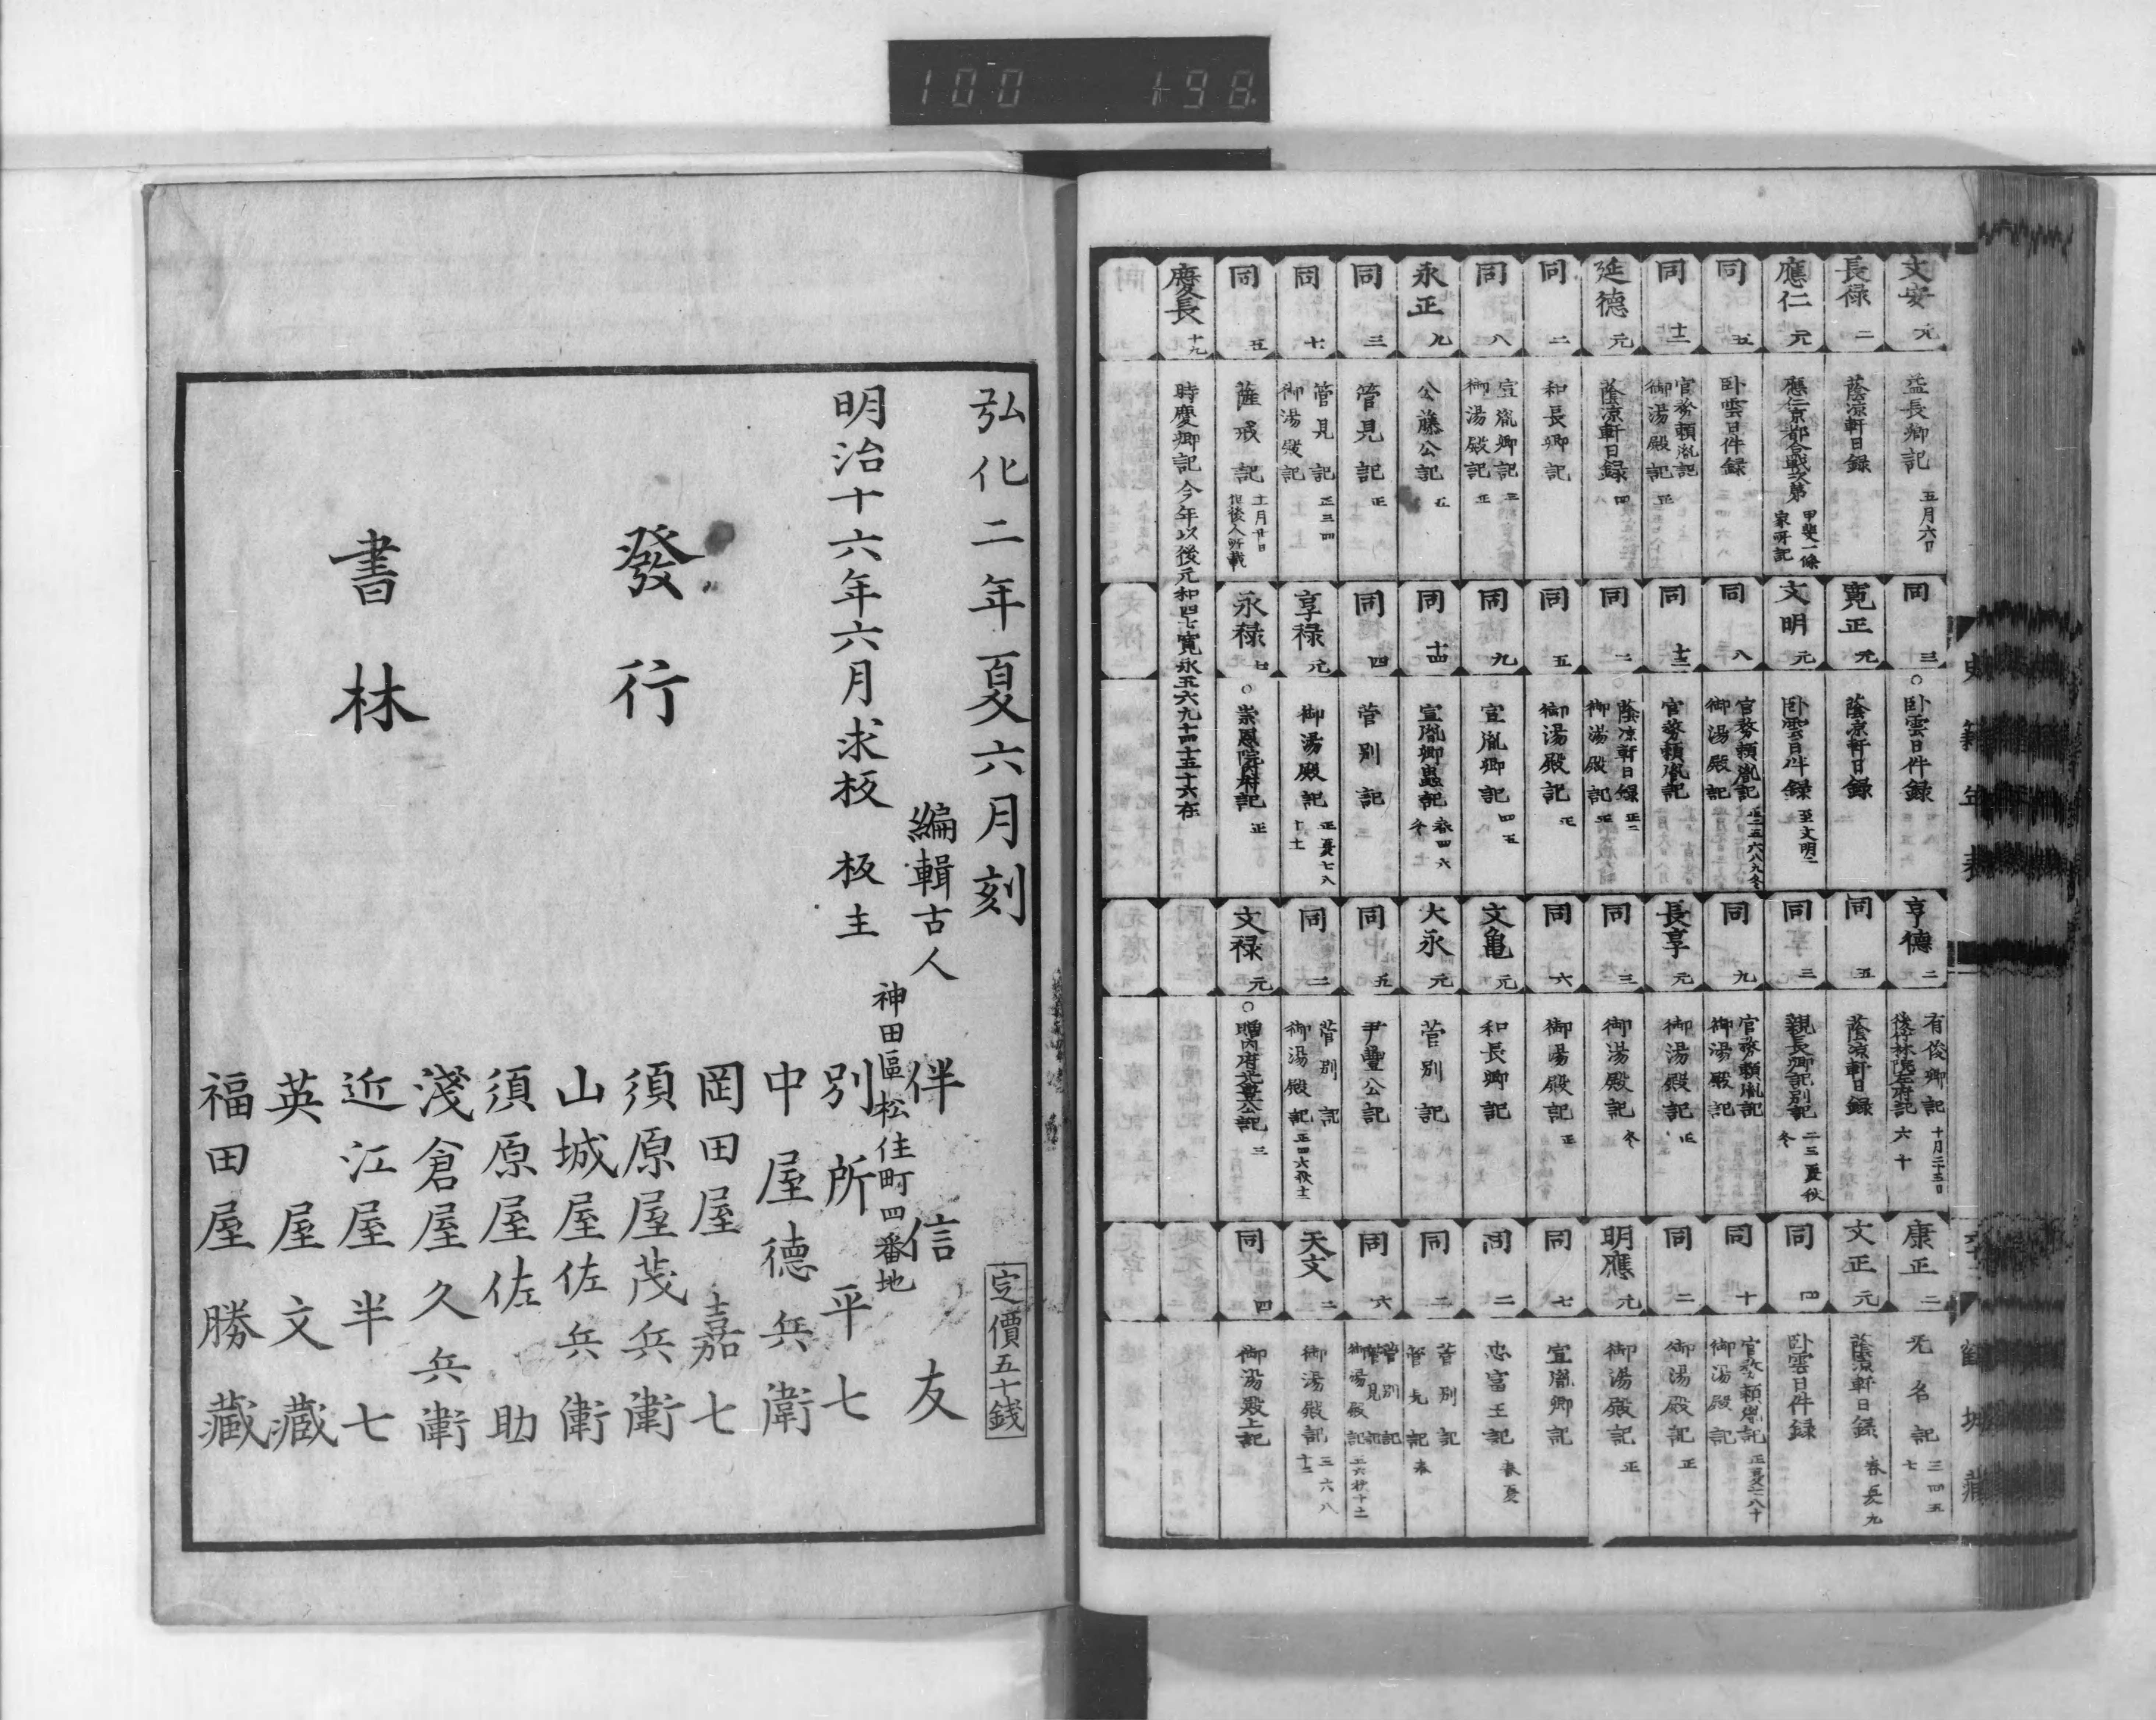 100 198
文安 元
益長卿記 五月六日
長禄 二
蔭凉軒日録
應仁 元
應仁京都合戰次第 甲斐一條家所記
同 五
卧雲日件録
同 十二
官務頼胤記
御湯殿記 正
延徳 元
蔭凉軒日録 四
同 二
和長卿記
同 八
宣胤卿記 三
御湯殿記 正
永正 九
公藤公記 五
同 三
管見記 正
同 七
管見記 正三四
御湯殿記
同 五
薩戒記 十一月廿日
慶長 十九
時慶卿記 今年以後元和四七寛永五六九十四十五十六在
同 三
○卧雲日件録
寛正 元
蔭凉軒日録
文明 元
卧雲日件録 至文明二
同 八
官務頼胤記 正二五六八九冬
御湯殿記
同 十三
官務頼胤記
同 二
蔭凉軒日録 正二
御湯殿記 正
同 五
御湯殿記 正
同 九
宣胤卿記 四五
同 十四
宣胤卿記 春四六
同 四
菅別記
享禄 元
御湯殿記 正夏七八
永禄 七
○崇恩院内府記 正
享徳 二
有俊卿記 十月二十三日
後竹林院左府記 六十
同 五
蔭凉軒日録
同 三
親長卿記別記 二三夏秋冬
同 九
官務頼胤記
御湯殿記
長享 元
御湯殿記 正
同 三
御湯殿記 冬
同 六
御湯殿記 正
文亀 元
和長卿記
大永 元
菅別記
同 五
尹豊公記
同 二
菅別記
御湯殿記 正四六秋十二
文禄 元
康正 二
无名記 三四五七
文正 元
蔭凉軒日録 春夏九
同 四
卧雲日件録
同 十
官務頼胤記
御湯殿記
同 二
御湯殿記 正
明應 元
御湯殿記 正
同 七
宣胤卿記
同 二
忠富王記 春夏
同 二
菅別記
同 六
菅別記
管見記
御湯殿記
天文 二
御湯殿記 三六八十二
同 四
御湯殿上記
弘化二年夏六月刻
定價五十銭
編輯古人 伴信友
明治十六年六月求板 板主
神田區松住町四番地
別所平七
中屋徳兵衛
岡田屋嘉七
須原屋茂兵衛
山城屋佐兵衛
須原屋佐助
淺倉屋久兵衛
近江屋半七
英屋文藏
福田屋勝藏
發行
書林